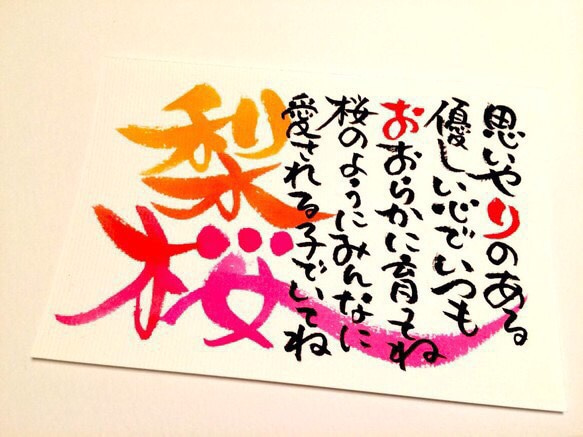 思いやりのある
優しい心でいつも
おおらかに育てね
桜のようにみんなに
愛される子でいてね
梨桜